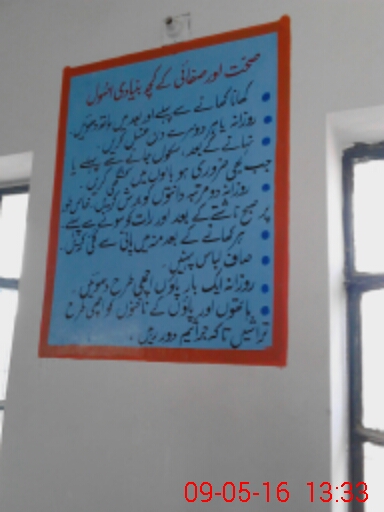 صحت اور صفائی کے کچھ بنیادی اصول
کھانا کھانے سے پہلے اور بعد میں ہاتھ دھوئیں۔
روزانہ یا ہر دوسرے دن غسل کریں۔
نہانے کے بعد، سکول جانے سے پہلے یا
جب بھی ضروری ہو بالوں میں کنگھی کریں۔
روزانہ دو مرتبہ دانتوں کو برش کریں۔ خاص طور
پر صبح ناشتے کے بعد اور رات کو سونے سے پہلے۔
ہر کھانے کے بعد منہ میں پانی سے کلی کریں۔
صاف لباس پہنیں۔
روزانہ ایک بار پاؤں اچھی طرح دھوئیں۔
ہاتھوں اور پاؤں کے ناخنوں کو اچھی طرح
تراشیں تاکہ جراثیم دور رہیں۔
09-05-16 13:33